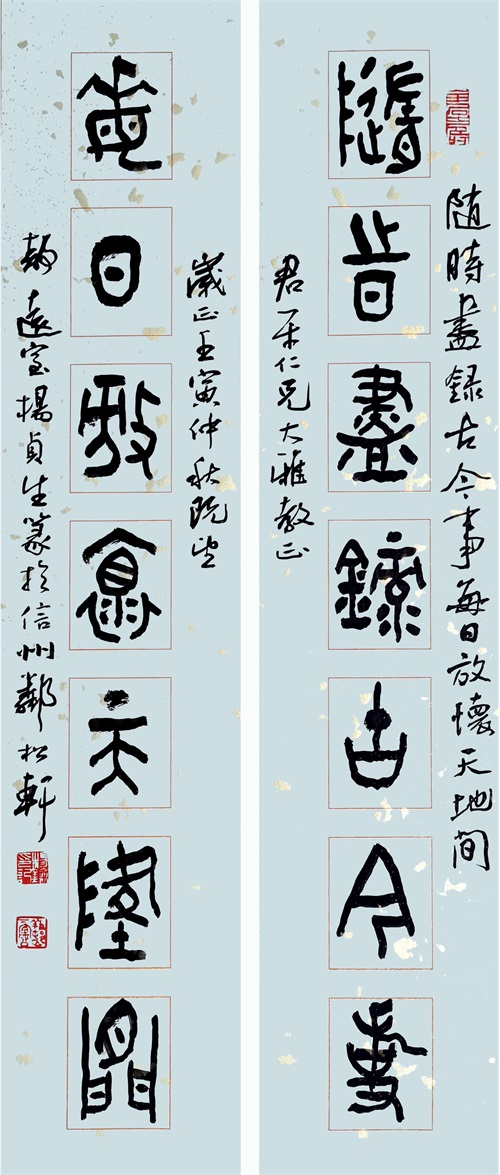 随時盡錄古今事每日放懷天地間
隨時盡錄古今事
君平仁兄大雅教正
歲正壬寅仲秋既望
每日放懷天地間
遠室楊貞生篆於信州鄰松軒